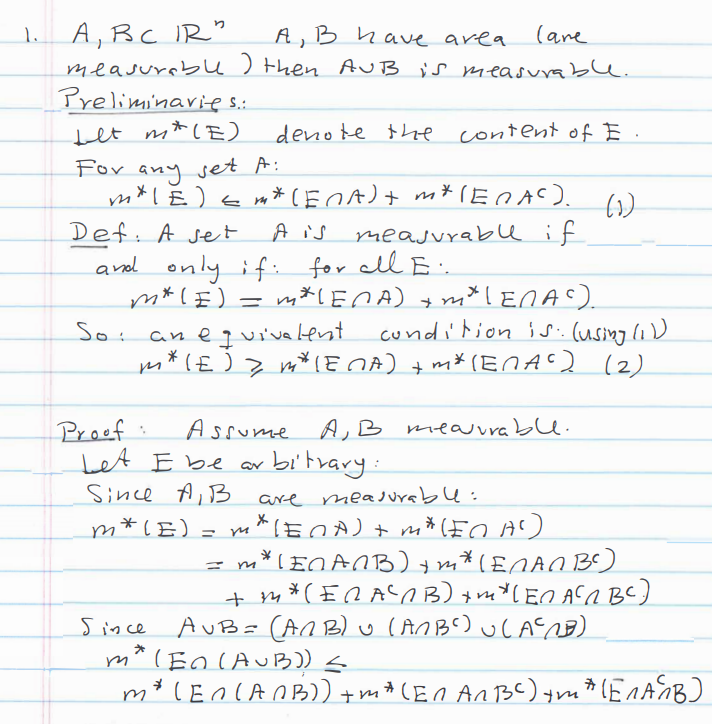 1. A, B ⊂ ℝⁿ A, B have area (are
measurable) then A∪B is measurable.
Preliminaries.:
Let m*(E) denote the content of E.
For any set A:
m*(E) ≤ m*(E∩A) + m*(E∩Aᶜ). (1)
Def: A set A is measurable if
and only if: for all E:
m*(E) = m*(E∩A) + m*(E∩Aᶜ).
So: an equivalent condition is: (using (1))
m*(E) ≥ m*(E∩A) + m*(E∩Aᶜ) (2)
Proof: Assume A, B measurable.
Let E be arbitrary:
Since A, B are measurable:
m*(E) = m*(E∩A) + m*(E∩Aᶜ)
= m*(E∩A∩B) + m*(E∩A∩Bᶜ)
+ m*(E∩Aᶜ∩B) + m*(E∩Aᶜ∩Bᶜ)
Since A∪B = (A∩B) ∪ (A∩Bᶜ) ∪ (Aᶜ∩B)
m*(E∩(A∪B)) ≤
m*(E∩(A∩B)) + m*(E∩A∩Bᶜ) + m*(E∩Aᶜ∩B)